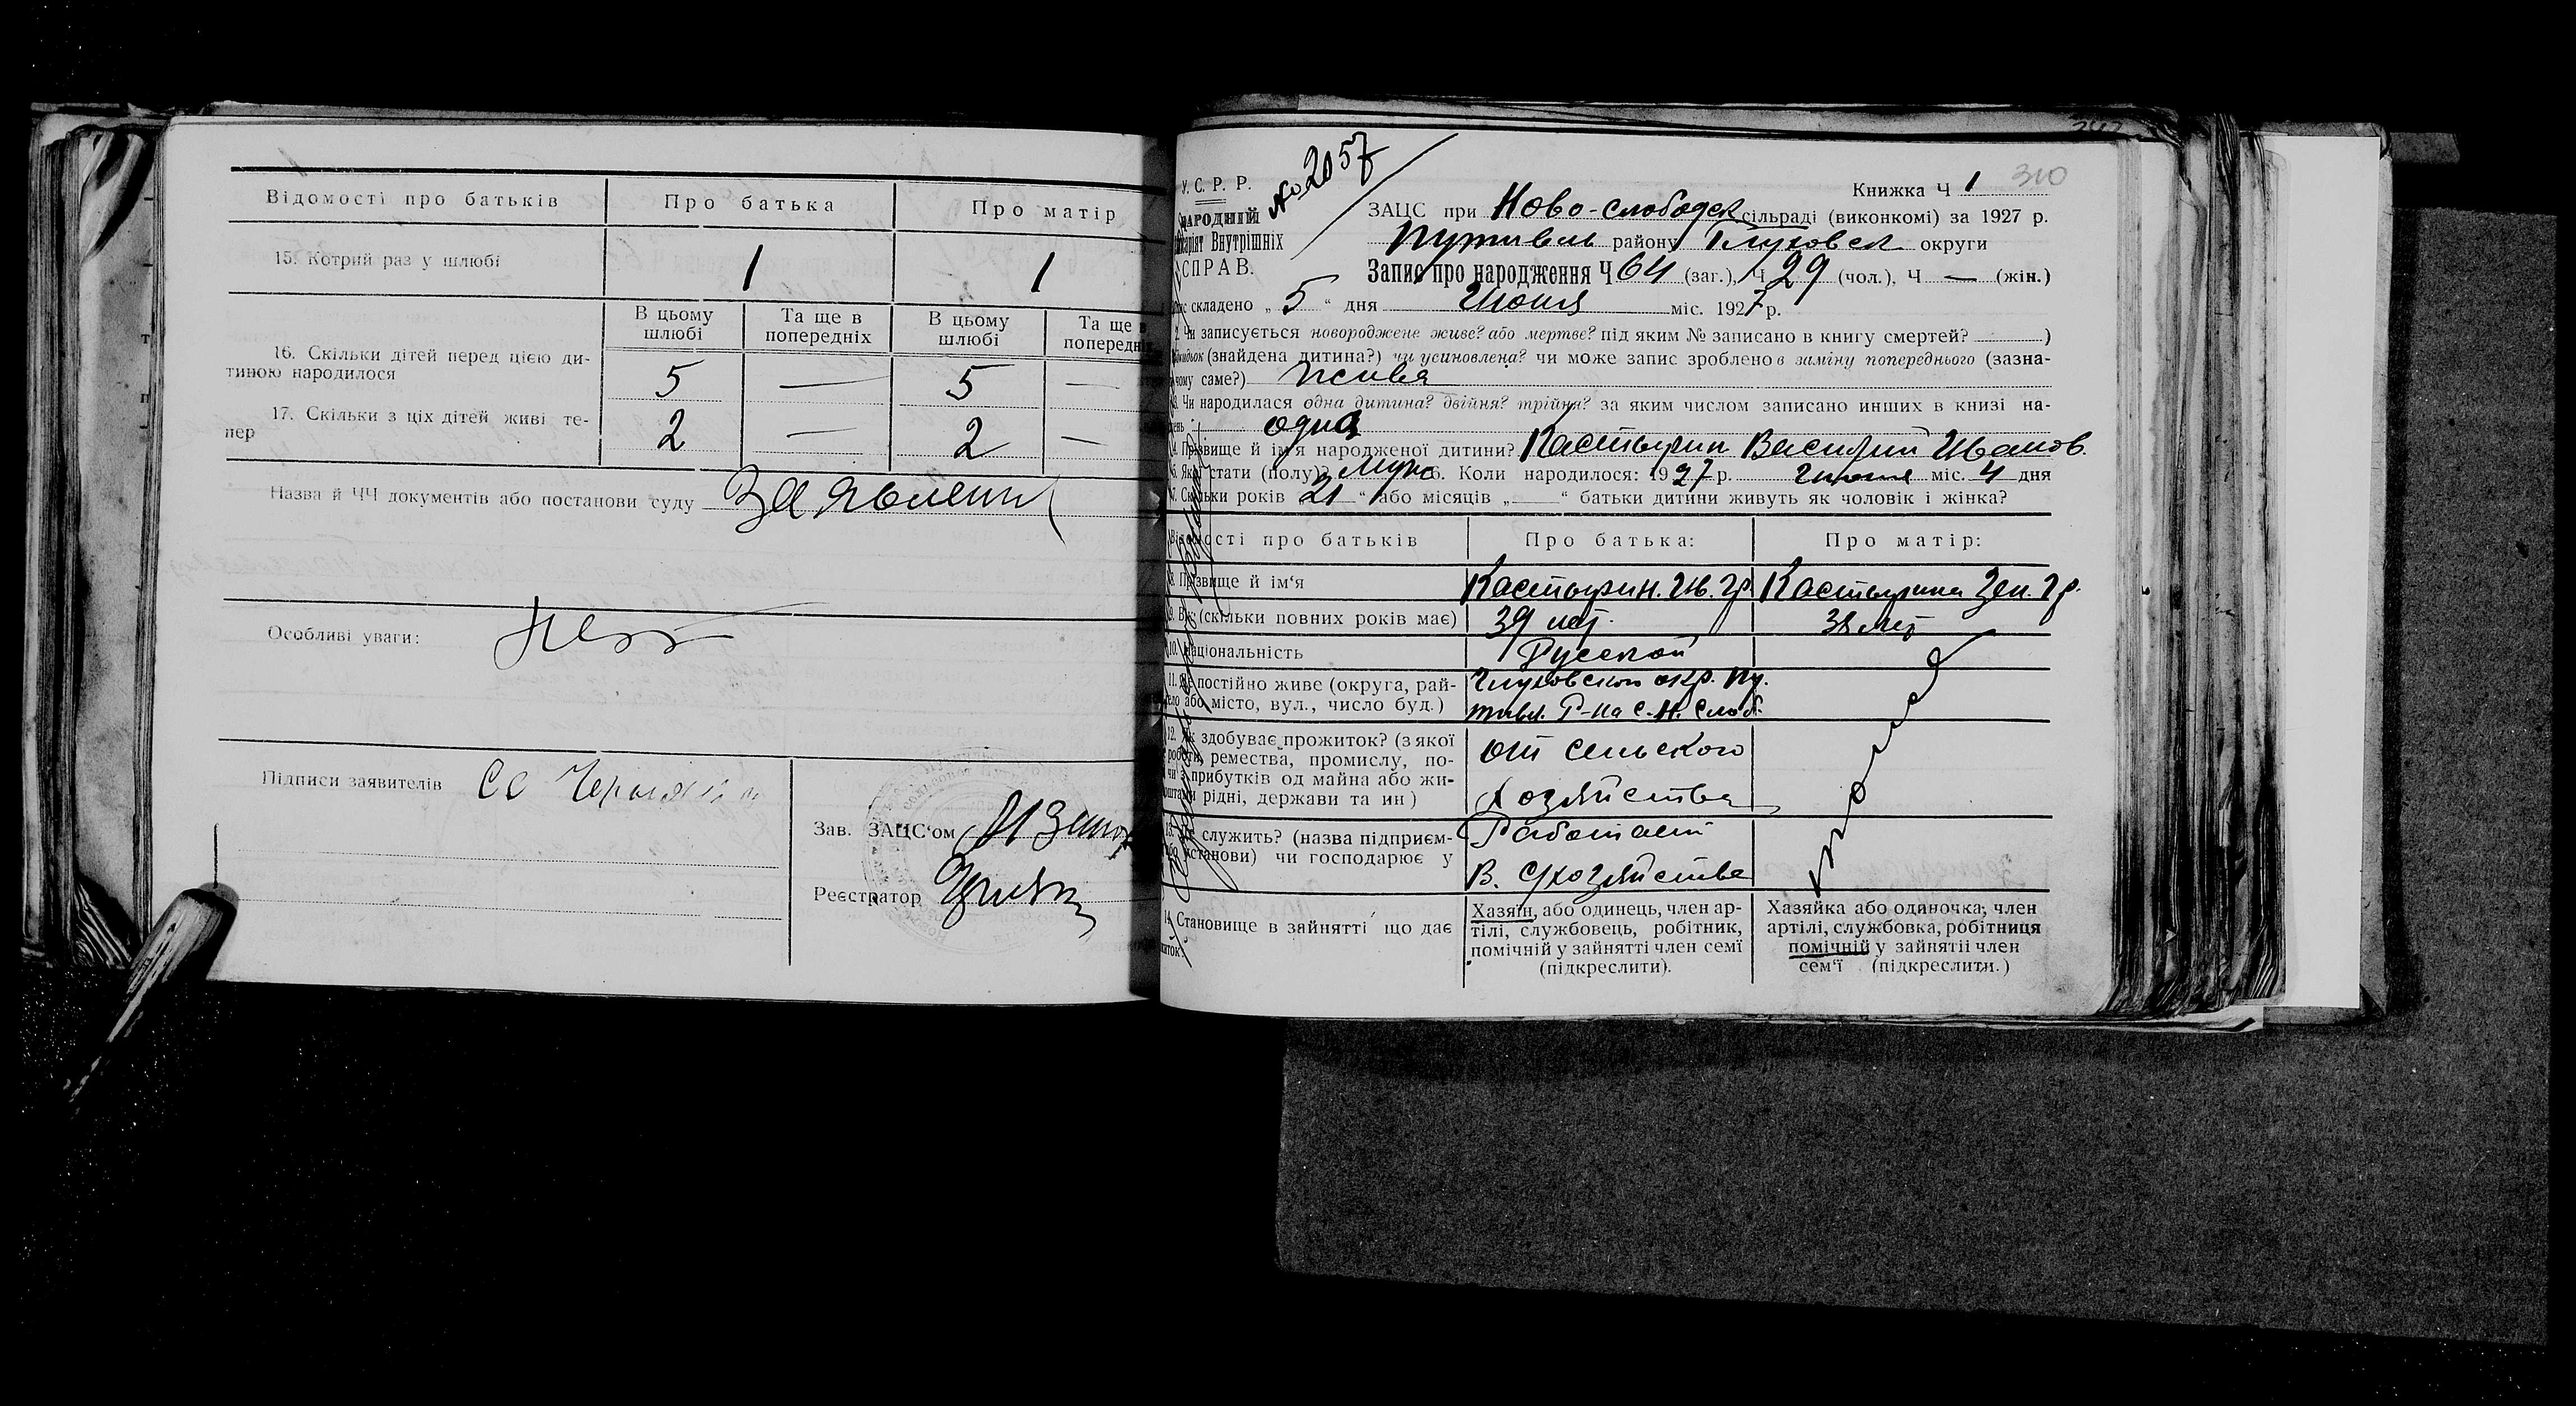 Відомості про батьків
Про батька
Про матір
15. Котрий раз у шлюбі
1
1
В цьому шлюбі
Та ще в попередніх
В цьому шлюбі
Та ще в
16. Скільки дітей перед цією ди-
тиною народилося
5
—
5
—
17. Скільки з ціх дітей живі те-
пер
2
—
2
—
Назва й ЧЧ документів або постанови суду
Особливі уваги:
Підписи заявителів
Зав. ЗАЦС'ом
Реєстратор
У. С. Р. Р.
№ 2057
НАРОДНІЙ
Внутрішніх
СПРАВ.
Книжка Ч 1 310
ЗАЦС при Ново-слободск сільраді (виконкомі) за 1927 р.
Путивль району Глуховск округи
Запис про народження Ч 64 (заг.), Ч 29 (чол.), Ч — (жін.)
складено „ 5 “ дня Июня міс. 1927 р.
2. Чи записується новороджене живе? або мертве? під яким № записано в книгу смертей? )
(знайдена дитина?) чи усиновлена? чи може запис зроблено в заміну попереднього (зазна-
чому саме?) живья
3. Чи народилася одна дитина? двійня? трійня? за яким числом записано инших в книзі на-
одна
4. Прізвище й ім'я народженої дитини? Кастырин Василий Иванов.
Якої стати (полу)? Муж 6. Коли народилося: 1927 р. июня міс. 4 дня
7. Скільки років „21“ або місяців „ “ батьки дитини живуть як чоловік і жінка?
Відомості про батьків
Про батька:
Про матір:
8. Прізвище й ім'я
Кастырин. Ив. Гр
Кастырина Зен. Гр.
9. Вік (скільки повних років має)
39 лет.
38 лет
10. Національність
Русской
11. Де постійно живе (округа, рай-
або місто, вул., число буд.)
Глуховского окр. Пу.
тивл. Р-на с. Н. Слоб.
12. Як здобуває прожиток? (з якої
роботи, ремества, промислу, по-
чи з прибутків од майна або жи-
рідні, держави та ин)
от сельского
хозяйства
тоже
13. Де служить? (назва підприєм-
або установи) чи господарює у
Работает
в. с/хозяйстве
14. Становище в зайнятті що дає
Хазяїн, або одинець, член ар-
тілі, службовець, робітник,
помічній у зайнятті член семї
(підкреслити).
Хазяйка або одиночка, член
артілі, службовка, робітниця
помічній у зайнятіі член
сем'ї (підкреслити.)